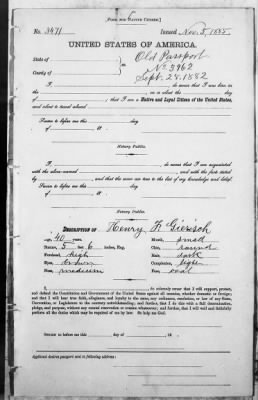 [FORM FOR NATIVE CITIZEN.]
No. 3471 Issued Nov. 5, 1885
UNITED STATES OF AMERICA.
State of Old Passport
County of No 3962
Sept. 28. 1882
I, do swear that I was born
in on the day
of , that I am a Native and Loyal Citizen of the United States,
and about to travel abroad
Sworn to before me this day
of , 18
Notary Public.
I, do swear that I am acquainted
with the above-named and with the facts stated
by and that the same are true to the best of my knowledge and belief.
Sworn to before me this day
of , 18
Notary Public.
DESCRIPTION OF Henry K Giersch
Age, 40 years. Mouth, small
Stature, 5 feet 6 inches, Eng. Chin, round
Forehead, high Hair, dark
Eyes, brown Complexion, light
Nose, medium Face, oval
I, , do solemnly swear that I will support, protect,
and defend the Constitution and Government of the United States against all enemies, whether domestic or foreign;
and that I will bear true faith, allegiance, and loyalty to the same, any ordinance, resolution, or law of any State,
Convention, or Legislature to the contrary notwithstanding; and further, that I do this with a full determination,
pledge, and purpose, without any mental reservation or evasion whatsoever; and further, that I will well and faithfully
perform all the duties which may be required of me by law. So help me God.
Sworn to before me this day of , 18 .
Applicant desires passport sent to following address: